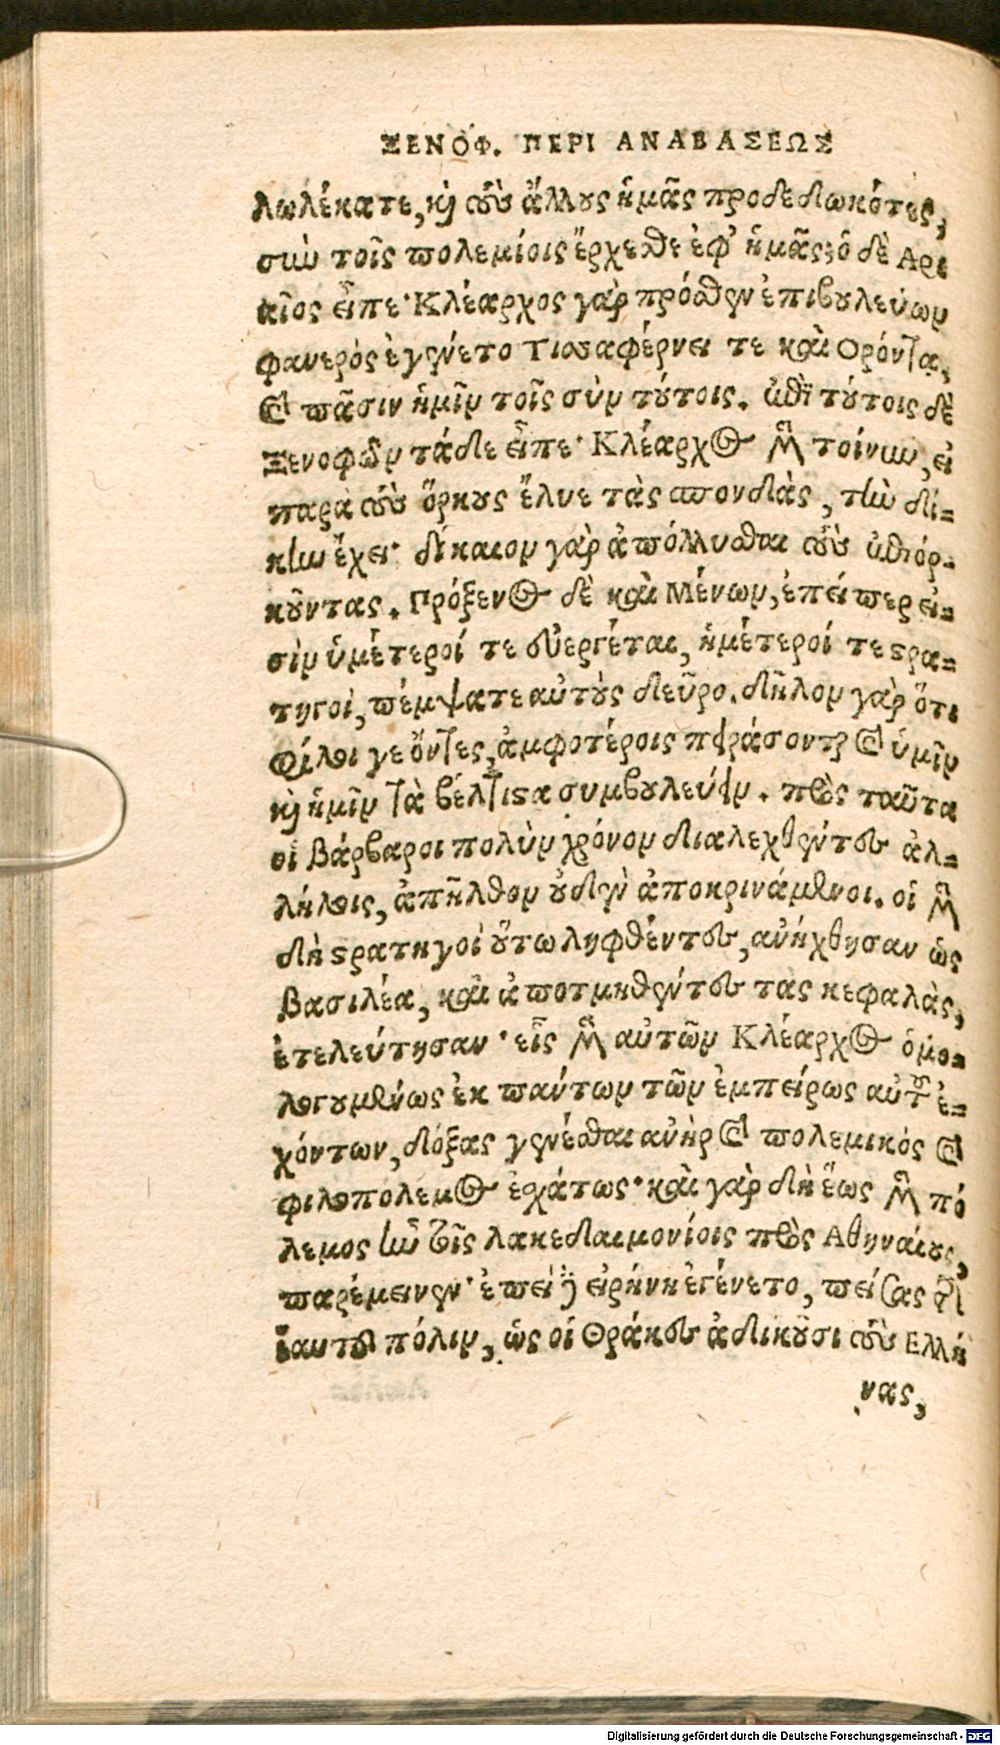 ΞΕΝΟΦ. ΠΕΡΙ ΑΝΑΒΑΣΕΩΣ
λωλέκατε, καὶ τοὺς ἄλλους ἡμᾶς προδεδωκότες,
σὺν τοῖς πολεμίοις ἔρχεσθε ἐφ᾽ ἡμᾶς; ὁ δὲ Αρι
αῖος εἶπε· Κλέαρχος γὰρ πρόσθεν ἐπιβουλεύων
φανερὸς ἐγένετο Τισσαφέρνει τε καὶ Ορόντᾳ,
καὶ πᾶσιν ἡμῖν τοῖς σὺν τούτοις. ἐπὶ τούτοις δὲ
Ξενοφῶν τάδε εἶπε· Κλέαρχος μὲν τοίνυν, εἰ
παρὰ τοὺς ὅρκους ἔλυε τὰς σπονδὰς, τὴν δί-
κην ἔχει· δίκαιον γὰρ ἀπόλλυσθαι τοὺς ἐπιορ-
κοῦντας. Πρόξενος δὲ καὶ Μένων, ἐπείπερ εἰ-
σὶν ὑμέτεροί τε εὐεργέται, ἡμέτεροί τε στρα-
τηγοὶ, πέμψατε αὐτοὺς δεῦρο. δῆλον γὰρ ὅτι
φίλοι γε ὄντες, ἀμφοτέροις πειράσονται καὶ ὑμῖν
καὶ ἡμῖν τὰ βέλτιστα συμβουλεύειν. πρὸς ταῦτα
οἱ βάρβαροι πολὺν χρόνον διαλεχθέντες ἀλ-
λήλοις, ἀπῆλθον οὐδὲν ἀποκρινάμενοι. οἱ μὲν
δὴ στρατηγοὶ οὕτω ληφθέντες, ἀνήχθησαν ὡς
βασιλέα, καὶ ἀποτμηθέντες τὰς κεφαλὰς,
ἐτελεύτησαν· εἷς μὲν αὐτῶν Κλέαρχος ὁμο-
λογουμένως ἐκ πάντων τῶν ἐμπείρως αὐτοῦ ἐ-
χόντων, δόξας γενέσθαι ἀνὴρ καὶ πολεμικὸς καὶ
φιλοπόλεμος ἐσχάτως· καὶ γὰρ δὴ ἕως μὲν πό
λεμος ἦν τοῖς λακεδαιμονίοις πρὸς Αθηναίους,
παρέμεινεν· ἐπεὶ δὲ εἰρήνη ἐγένετο, πείσας τὴν
ἑαυτοῦ πόλιν, ὡς οἱ Θρᾷκες ἀδικοῦσι τοὺς Ελλη
νας,
Digitalisierung gefördert durch die Deutsche Forschungsgemeinschaft - DFG